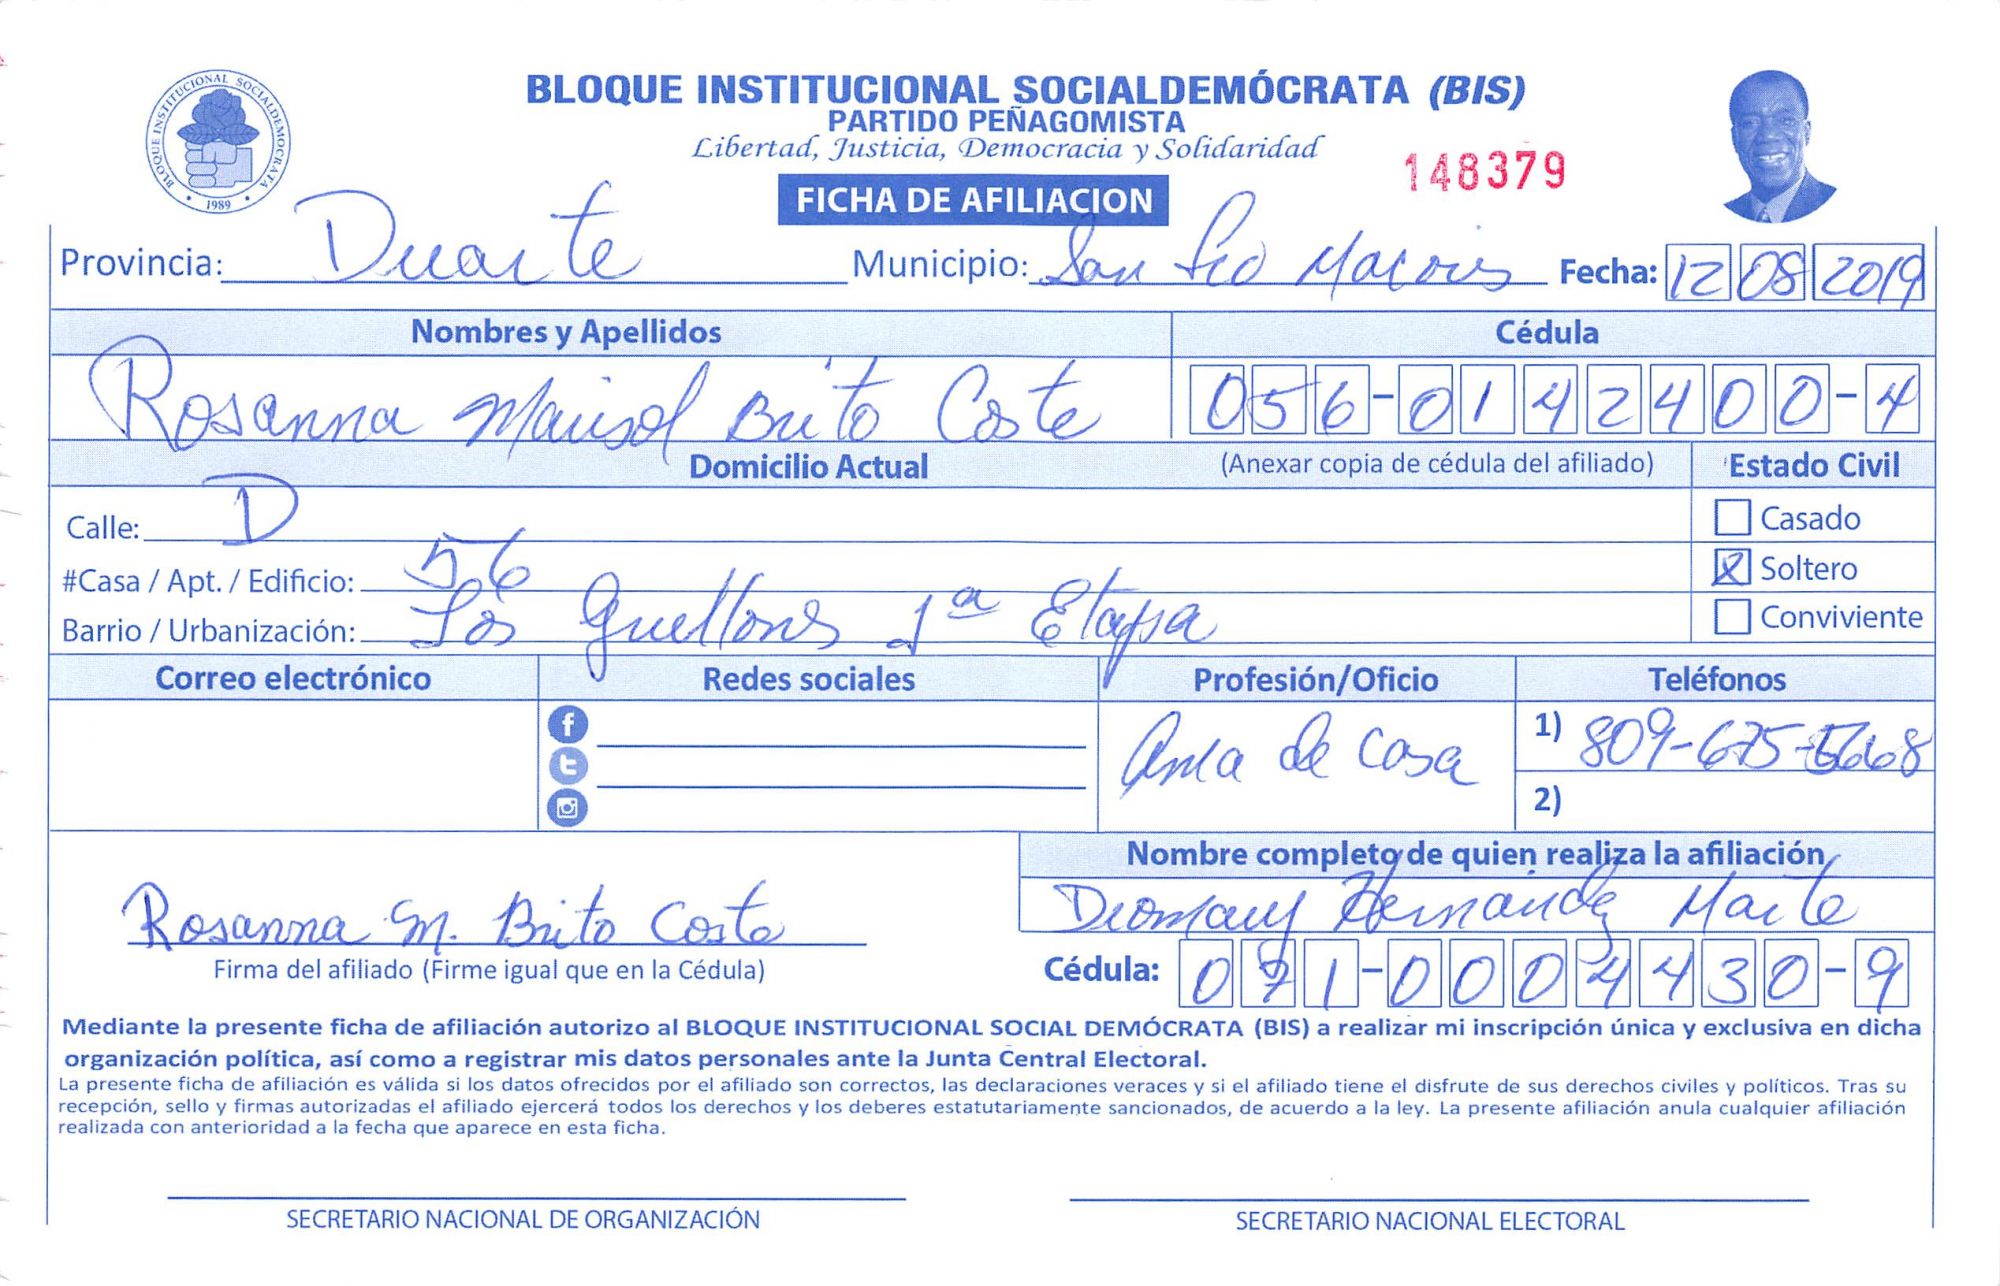 BLOQUE INSTITUCIONAL SOCIALDEMÓCRATA (BIS)
PARTIDO PEÑAGOMISTA
Libertad, Justicia, Democracia y Solidaridad
148379
BLOQUE INSTITUCIONAL SOCIALDEMOCRATA
1989
FICHA DE AFILIACION
Provincia: Duarte Municipio: San Fco Macoris Fecha: 12 08 2019
Nombres y Apellidos Cédula
Rosanna Marisol Brito Coste 056-0142400-4
Domicilio Actual (Anexar copia de cédula del afiliado) Estado Civil
Calle: D Casado
#Casa / Apt. / Edificio: 56 X Soltero
Barrio / Urbanización: Los Guellones 1ª Etapa Conviviente
Correo electrónico Redes sociales Profesión/Oficio Teléfonos
Ama de Casa 1) 809-675-5668
2)
Nombre completo de quien realiza la afiliación
Rosanna M. Brito Coste Hernandez Marte
Firma del afiliado (Firme igual que en la Cédula) Cédula: 071-0004430-9
Mediante la presente ficha de afiliación autorizo al BLOQUE INSTITUCIONAL SOCIAL DEMÓCRATA (BIS) a realizar mi inscripción única y exclusiva en dicha
organización política, así como a registrar mis datos personales ante la Junta Central Electoral.
La presente ficha de afiliación es válida si los datos ofrecidos por el afiliado son correctos, las declaraciones veraces y si el afiliado tiene el disfrute de sus derechos civiles y políticos. Tras su
recepción, sello y firmas autorizadas el afiliado ejercerá todos los derechos y los deberes estatutariamente sancionados, de acuerdo a la ley. La presente afiliación anula cualquier afiliación
realizada con anterioridad a la fecha que aparece en esta ficha.
SECRETARIO NACIONAL DE ORGANIZACIÓN SECRETARIO NACIONAL ELECTORAL